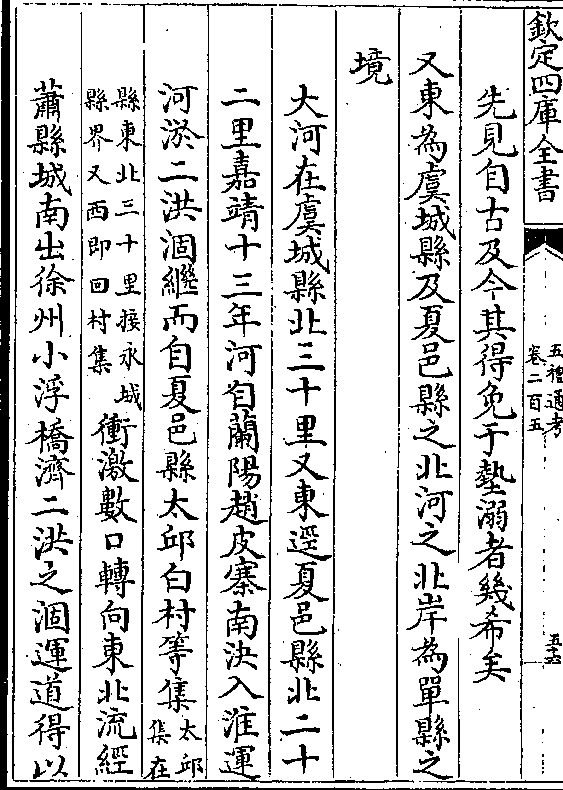 欽定四庫全書
五禮通考
卷二百五
五十六
先見自古及今其得免于墊溺者幾希矣
又東為虞城縣及夏邑縣之北河之北岸為單縣之
境
大河在虞城縣北三十里又東逕夏邑縣北二十
二里嘉靖十三年河自蘭陽趙皮寨南決入淮運
河淤二洪涸繼而自夏邑縣太邱白村等集太邱集在
縣東北三十里接永城縣界又西即回村集衝激數口轉向東北流經
蕭縣城南出徐州小浮橋濟二洪之涸運道得以